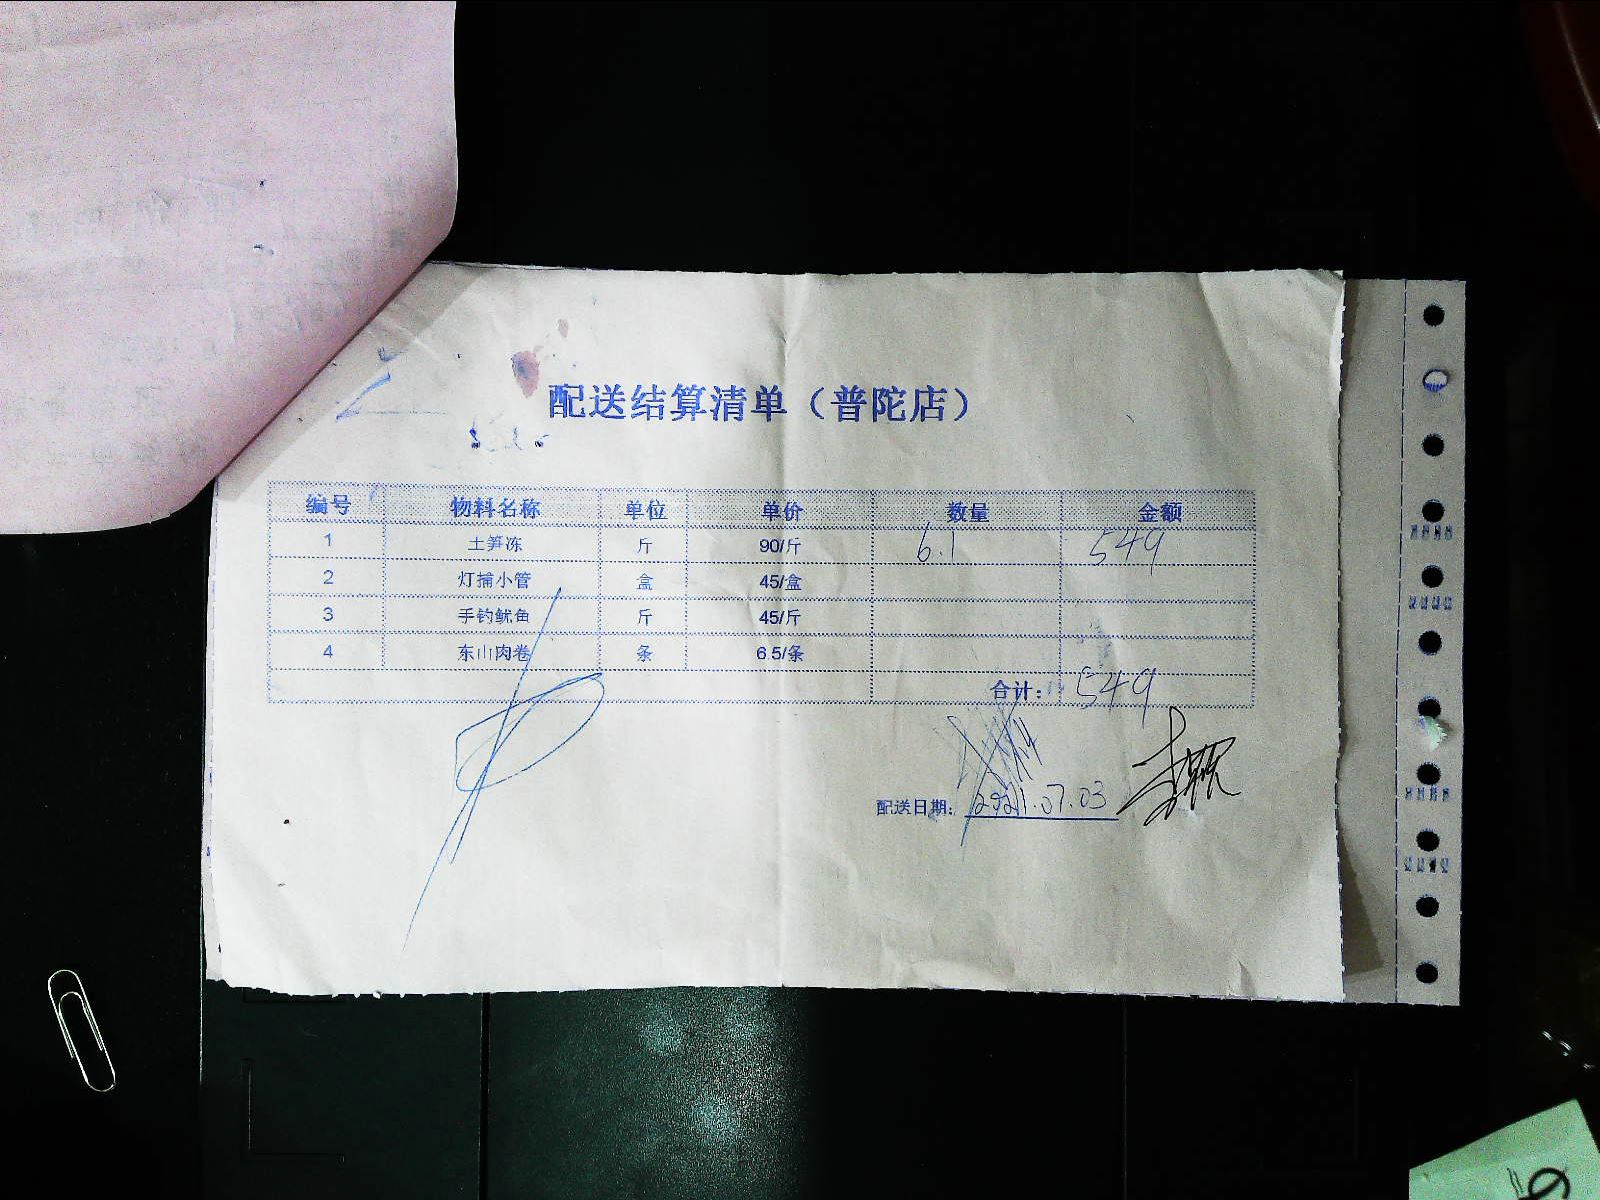 配送结算清单（普陀店）
编号 物料名称 单位 单价 数量 金额
1 土笋冻 斤 90/斤 6.1 549
2 灯捕小管 盒 45/盒
3 手钓鱿鱼 斤 45/斤
4 东山肉卷 条 6.5/条
合计： 549
配送日期： 2021.07.03